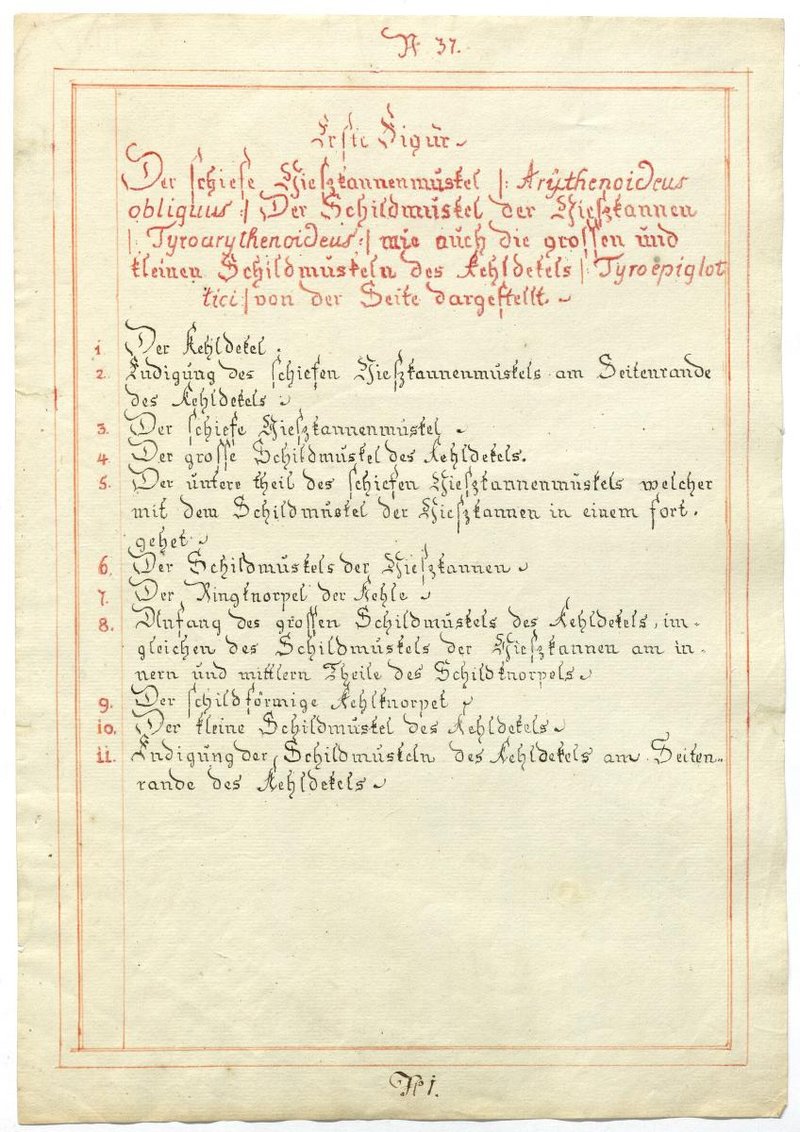 N. 37.
Erste Figur
Der schiefe Gieszkannenmuskel |: Arÿthenoideus
obliquus :| Der Schildmuskel der Gieszkannen
|: Tyroarythenoideus :| wie auch die grossen und
kleinen Schildmuskeln des Kehldekels |: Tyroepiglot
tici | von der Seite dargestellt
1 Der Kehldekel.
2. Endigung des schiefen Gieszkannenmuskels am Seitenrande
des Kehldekels
3. Der schiefe Gieszkannenmuskel
4. Der grosse Schildmuskel des Kehldekels.
5. Der untere theil des schiefen Gieszkannenmuskels welcher
mit dem Schildmuskel der Gieszkannen in einem fort.
gehet
6. Der Schildmuskels der Gieszkannen
7. Der Ringknorpel der Kehle
8. Anfang des grossen Schildmuskels des Kehldekels, im-
gleichen des Schildmuskels der Gieszkannen am in-
nern und mittlern Theile des Schildknorpels
9. Der schildförmige Kehlknorpel
10. Der kleine Schildmuskel des Kehldekels
11. Endigung der Schildmuskeln des Kehldekels am Seiten-
rande des Kehldekels
N 1.